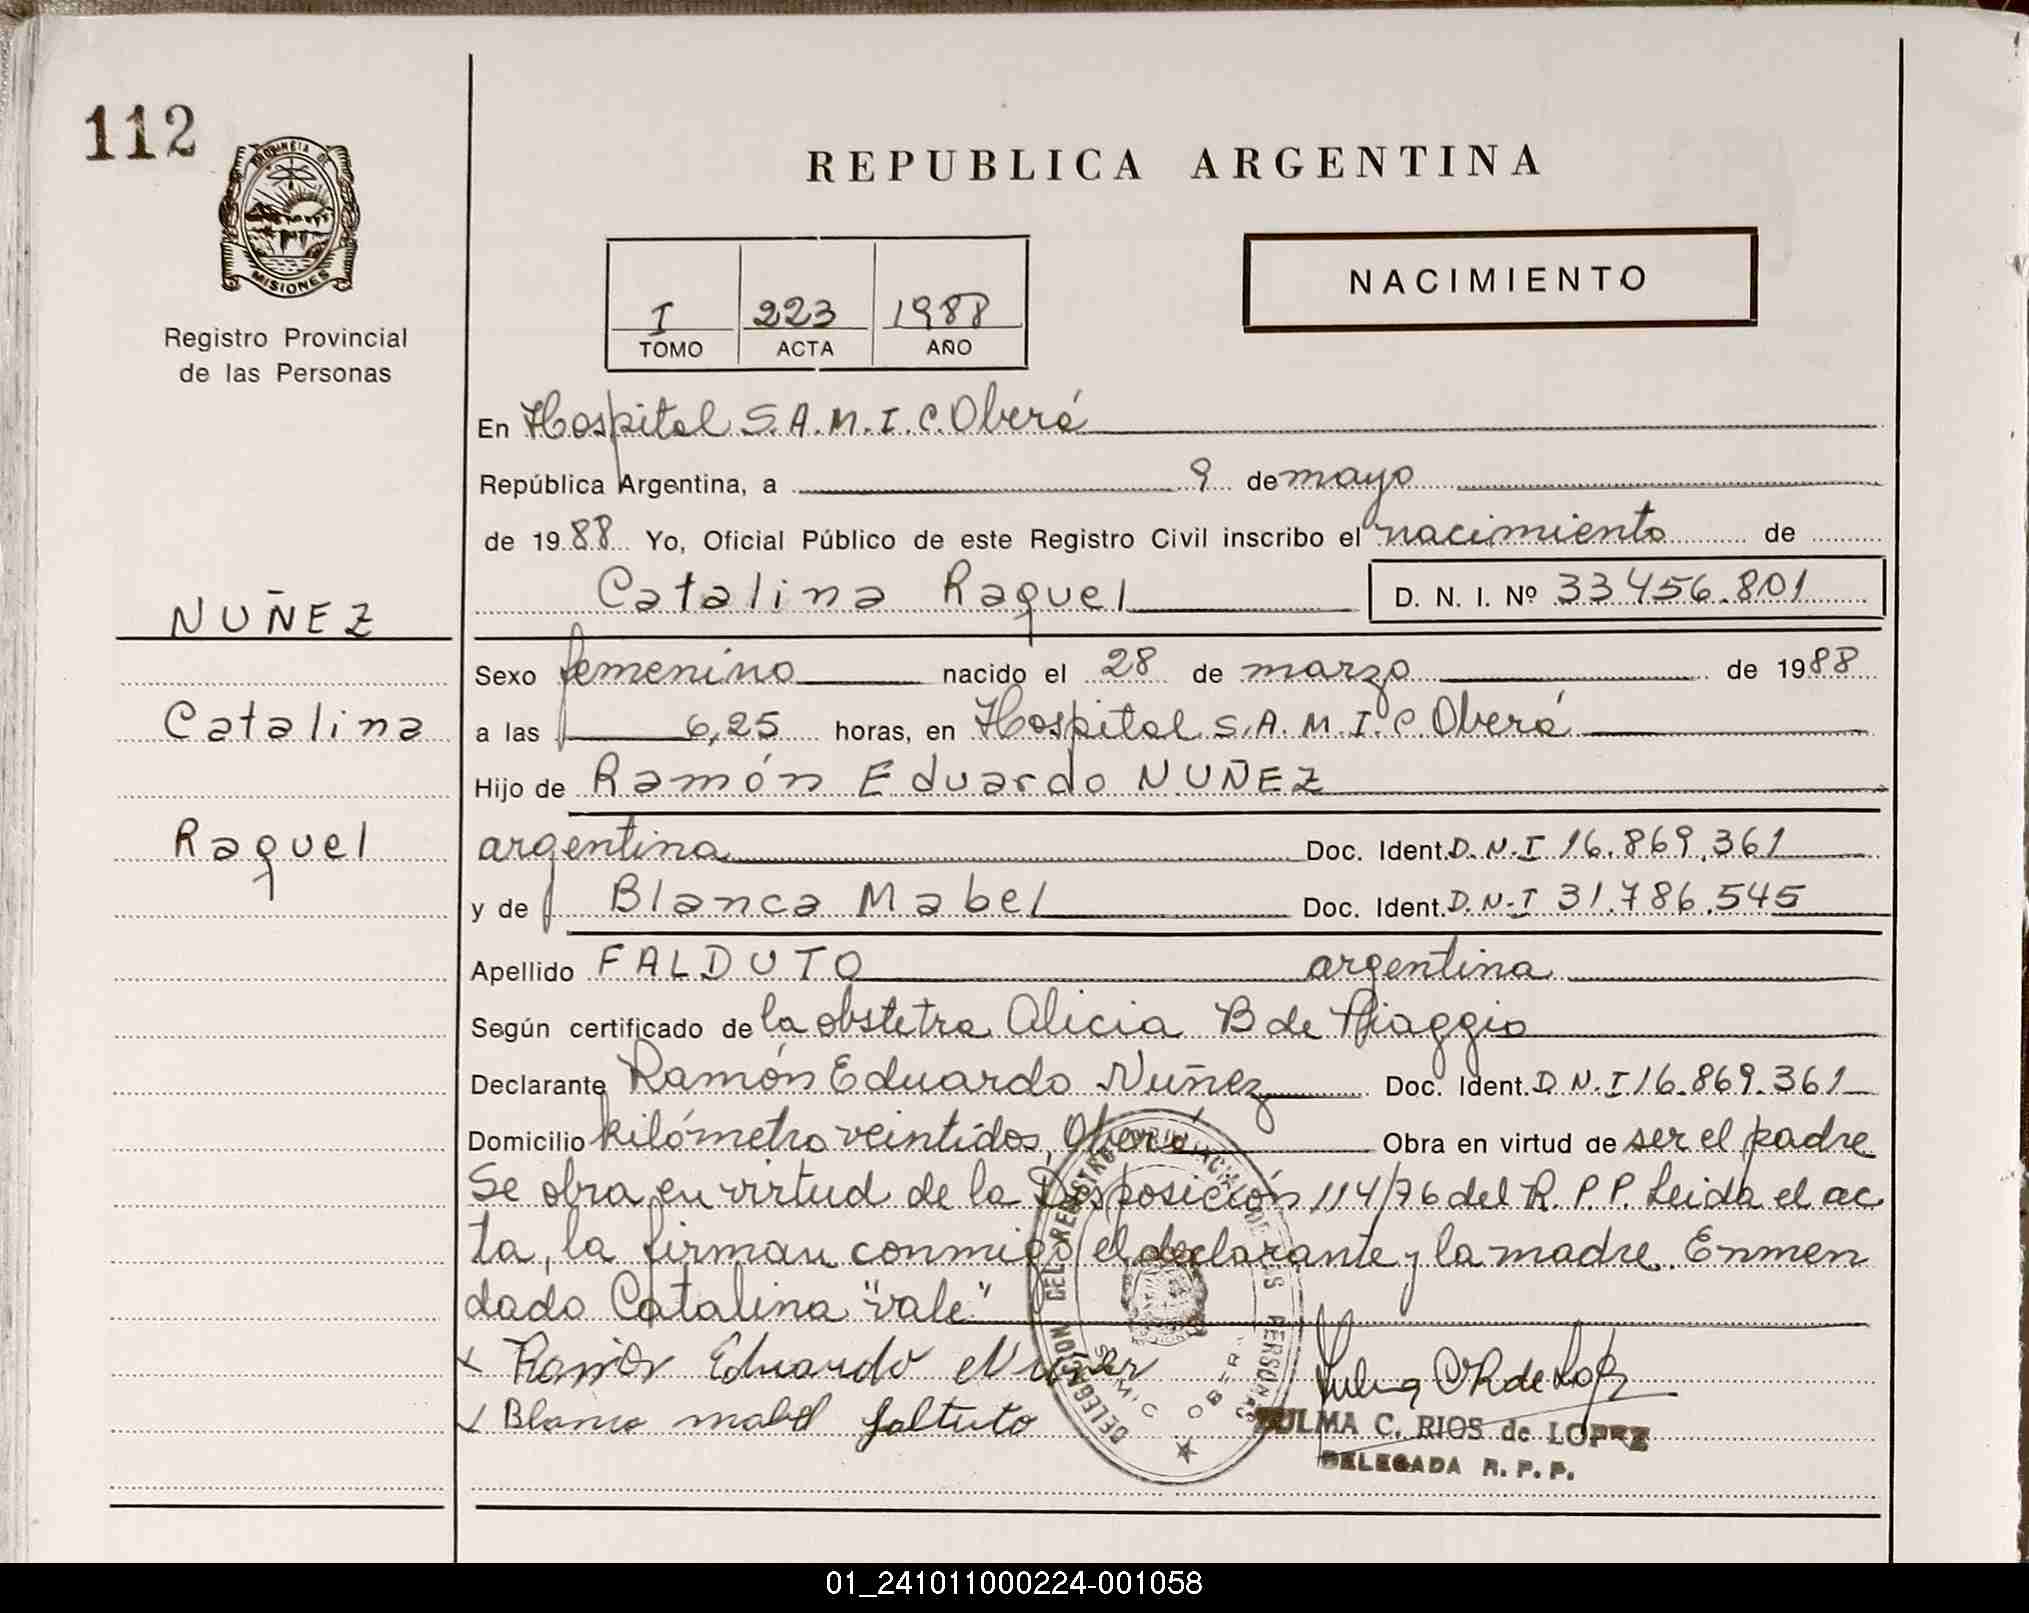 112
PROVINCIA DE
MISIONES
Registro Provincial
de las Personas
REPUBLICA ARGENTINA
NACIMIENTO
I 223 1988
TOMO ACTA AÑO
En Hospital S.A.M.I.C. Oberá
República Argentina, a 9 de mayo
de 1988 Yo, Oficial Público de este Registro Civil inscribo el nacimiento de
Catalina Raquel D. N. I. Nº 33.456.801
NUÑEZ
Catalina
Raquel
Sexo femenino nacido el 28 de marzo de 1988
a las 6,25 horas, en Hospital S.A.M.I.C. Oberá
Hijo de Ramón Eduardo NUÑEZ
argentina Doc. Ident. D.N.I 16.869.361
y de Blanca Mabel Doc. Ident. D.N.I 31.786.545
Apellido FALDUTO argentina
Según certificado de la obstetra Alicia B de
Declarante Ramón Eduardo Nuñez Doc. Ident. D.N.I 16.869.361
Domicilio kilómetro veintidos, Oberá Obra en virtud de ser el padre
Se obra en virtud de la Disposición 114/76 del R.P.P. Leida el ac
ta, la firman conmigo el declarante y la madre. Enmen
dado Catalina "vale"
x Ramón Eduardo Nuñez
x Blanca mabel faltuto
DELEGACION DEL REGISTRO PROVINCIAL DE LAS PERSONAS
SAMIC OBERA
ZULMA C. RIOS de LOPEZ
DELEGADA R. P. P.
01_241011000224-001058